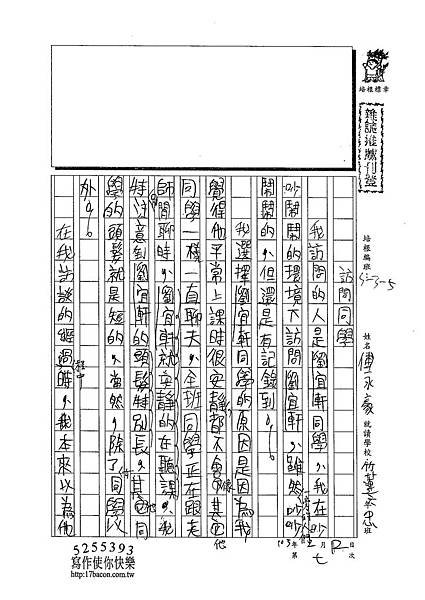 培根標章
訪問同學
我訪問的人是劉宜軒同學，我在吵
吵鬧鬧的環境下訪問劉宜軒，雖然吵吵
鬧鬧的，但還是有記錄到。
我選擇劉宜軒同學的原因是因為我
覺得他平常上課時很安靜，都不會像其他
同學一樣一直聊天，全班同學正在跟老
師閒聊時，劉宜軒就安靜的在聽課，我
特注意到劉宜軒的頭髮特別長，其他同
學的頭髮就是短的，當然，除了女同學以
外。
在我訪談的過程中，我本來以為他
培根編班
姓名
就讀學校
班
年
月
日
第
七
次
5255393
寫作使你快樂
http://www.17bacon.com.tw